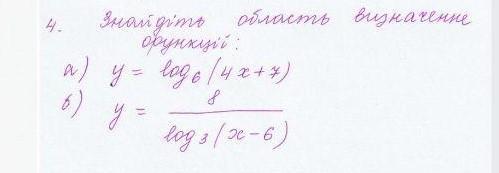 4. Знайдіть область визначенне
функції:
а) y = log₆(4x+7)
б) y = 8 / log₃(x-6)